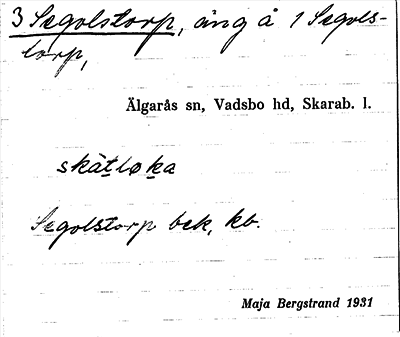 3 Segolstorp, äng å 1 Segols-
torp,
Älgarås sn, Vadsbo hd, Skarab. l.
skåtløka
Segolstorp bek, kb.
Maja Bergstrand 1931